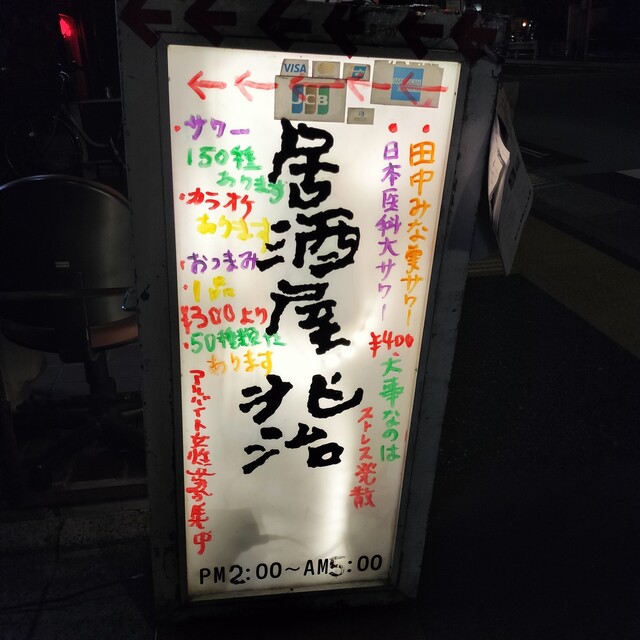 VISA
JCB
・田中みな実サワー
・日本医科大サワー
¥400
・大事なのは
ストレス発散
居酒屋
・サワー
150種
あります
・カラオケ
あります
・おつまみ
・1品
¥300より
・50種類位
あります
アルバイト女性募集中
PM2:00～AM5:00